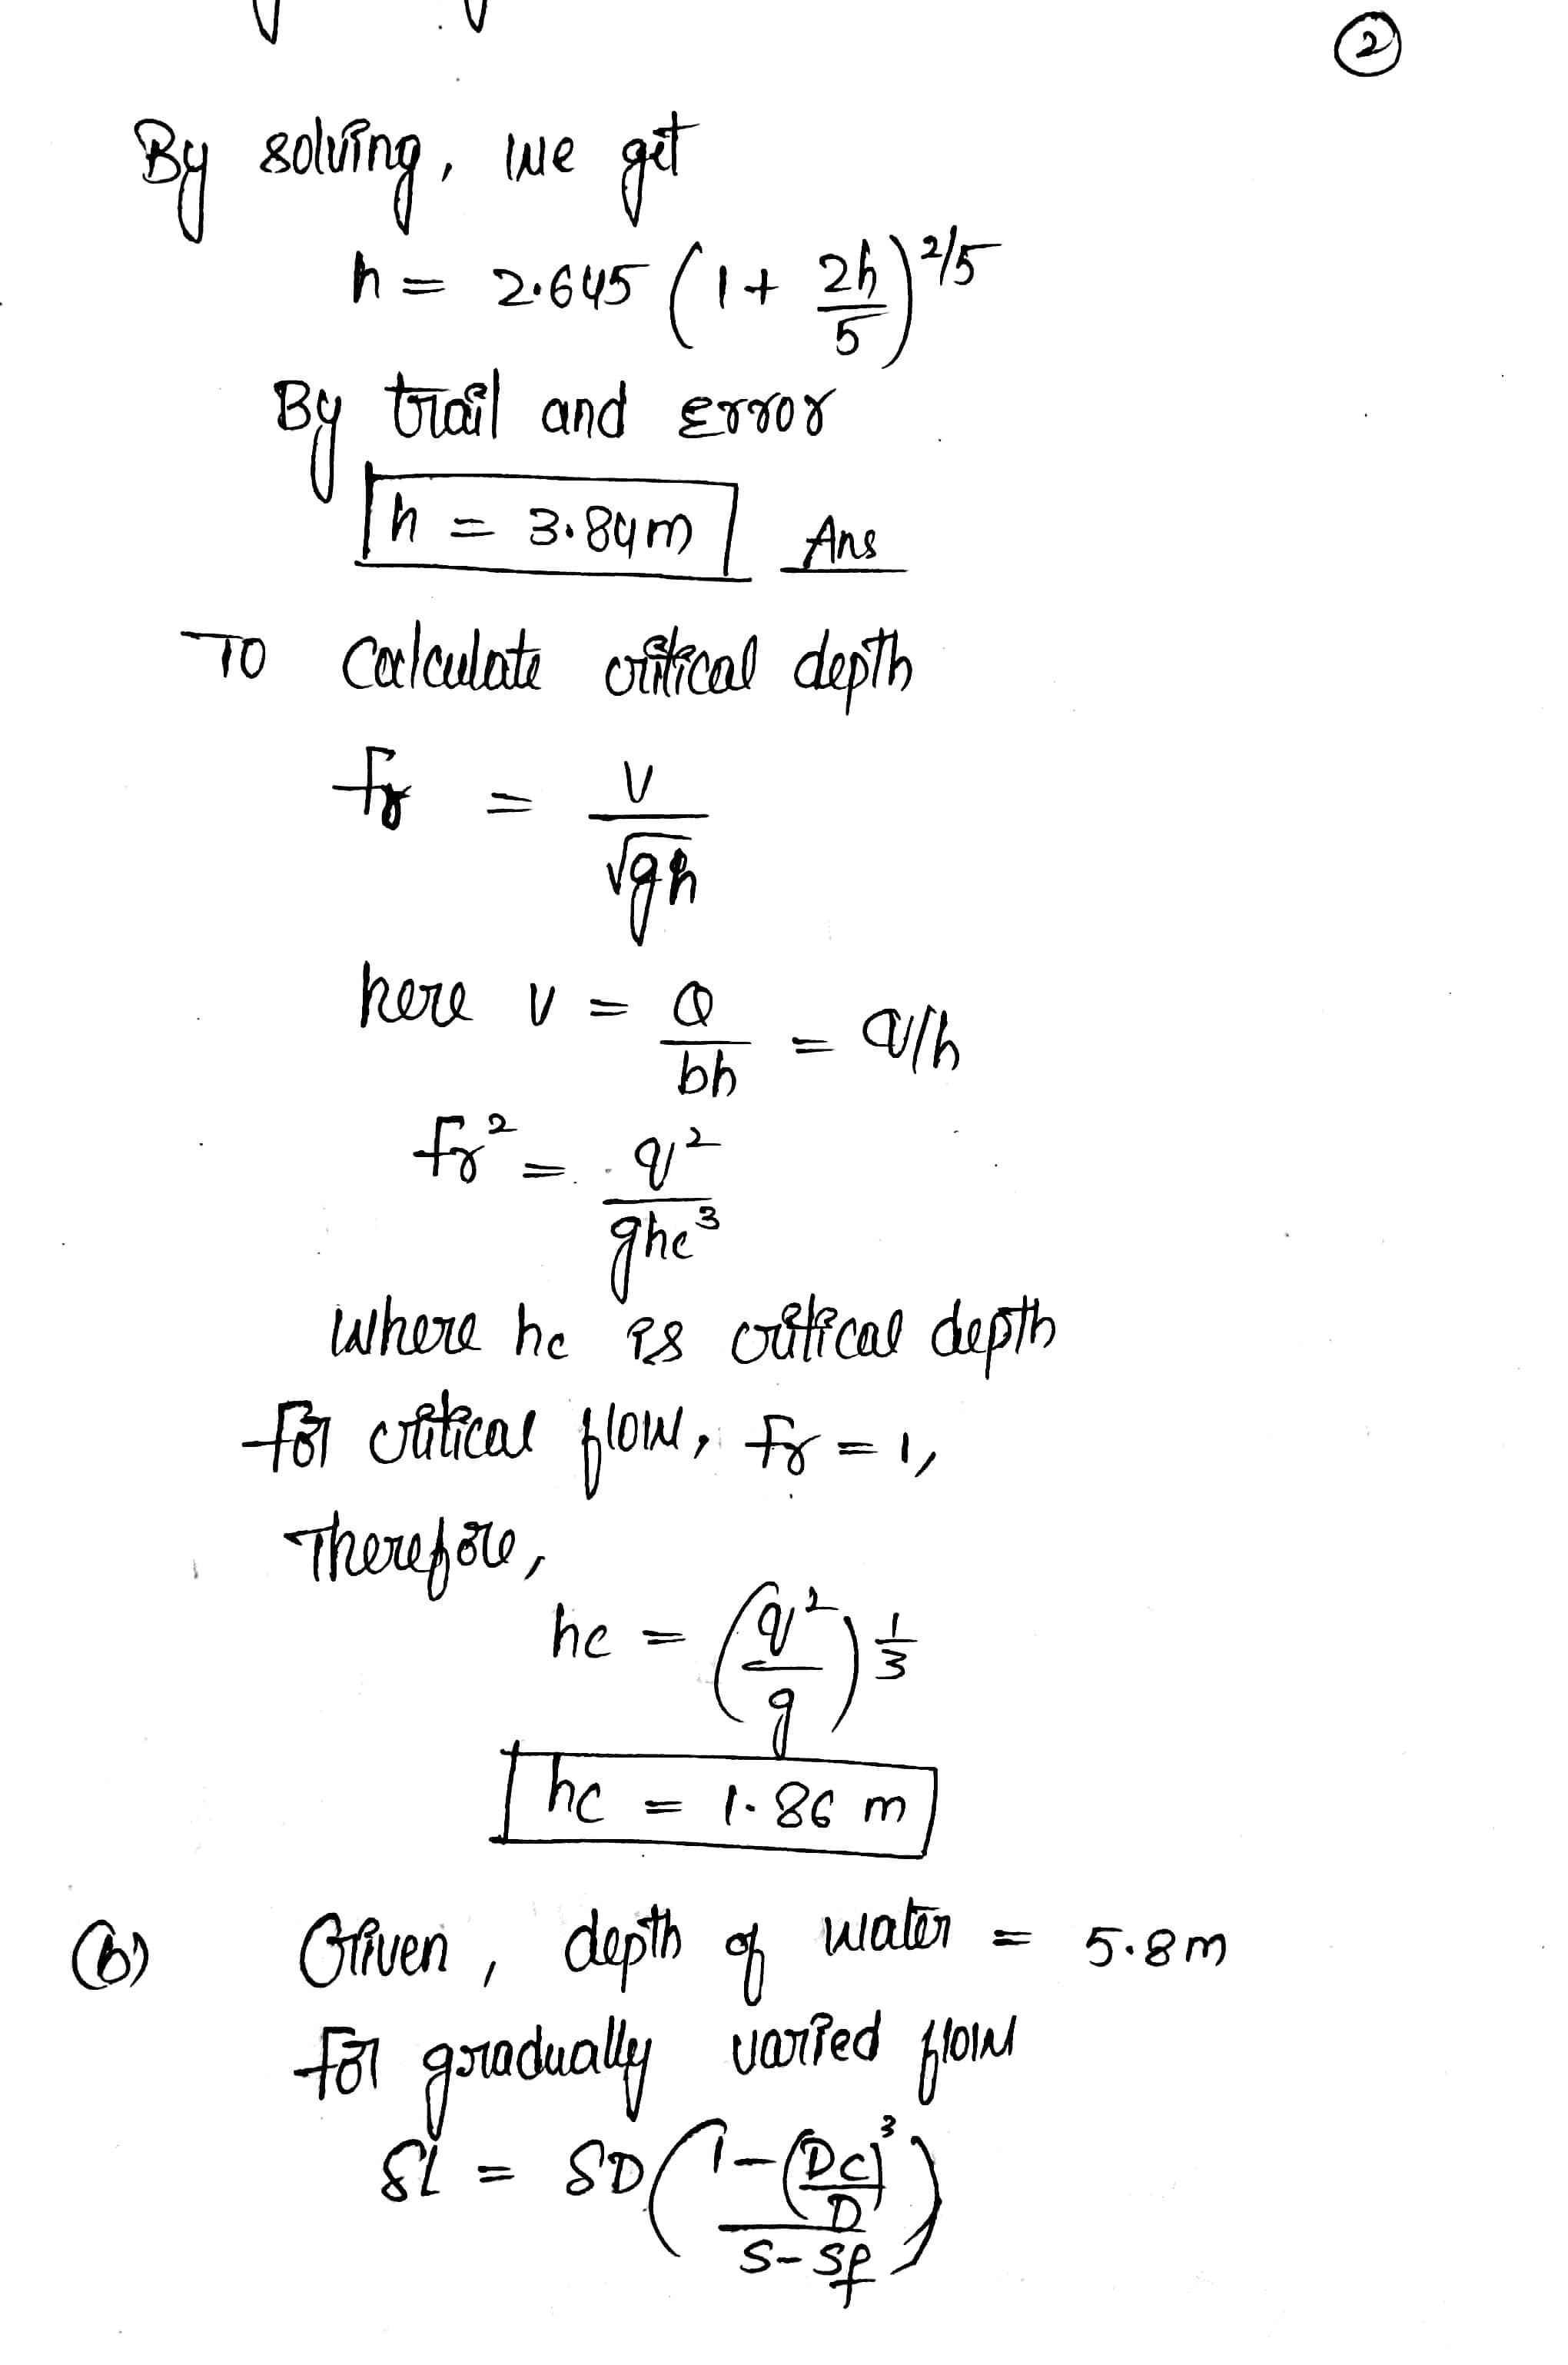 2
By solving, we get
h = 2.645 (1 + 2h/5)^2/5
By trail and Error
h = 3.84m Ans
To Calculate critical depth
fr = V/√gh
here v = Q/bh = q/h
fr² = q²/ghc³
where hc is critical depth
for critical flow, fr = 1,
Therefore,
hc = (q²/g)^1/3
hc = 1.86 m
(b) Given, depth of water = 5.8m
for gradually varied flow
δL = δD (1-(Dc/D)³/S-Sf)